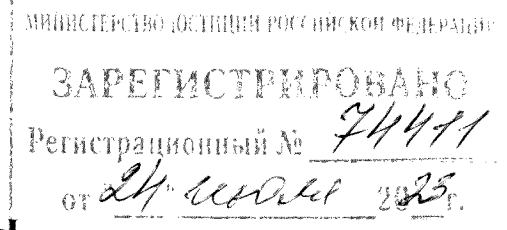 МИНИСТЕРСТВО ЮСТИЦИИ РОССИЙСКОЙ ФЕДЕРАЦИИ
ЗАРЕГИСТРИРОВАНО
Регистрационный № 74411
от "24" июля 2023г.